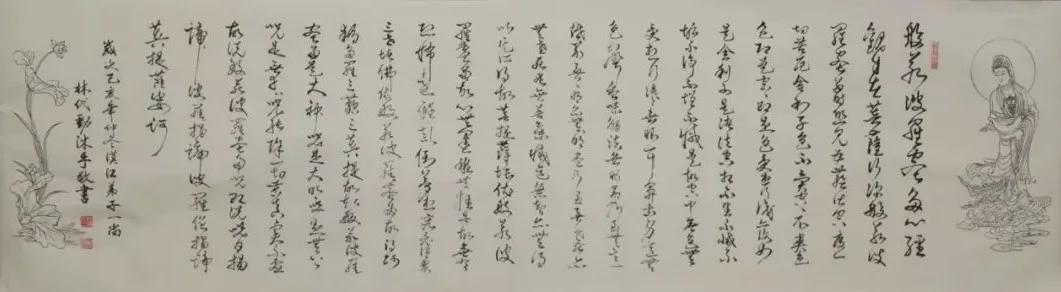 般若波羅蜜多心經
觀自在菩薩行深般若波
羅蜜多時照見五蘊皆空度一
切苦厄舍利子色不異空空不異色
色即是空空即是色受想行識亦復如
是舍利子是諸法空相不生不滅不
垢不淨不增不減是故空中無色無
受想行識無眼耳鼻舌身意無
色聲香味觸法無眼界乃至無意
識界無無明亦無無明盡乃至無老死亦
無老死盡無苦集滅道無智亦無得
以無所得故菩提薩埵依般若波
羅蜜多故心無罣礙無罣礙故無有
恐怖遠離顛倒夢想究竟涅槃
三世諸佛依般若波羅蜜多故得阿
耨多羅三藐三菩提故知般若波羅
蜜多是大神咒是大明咒是無上
咒是無等等咒能除一切苦真實不虛
故說般若波羅蜜多咒即說咒曰揭
諦揭諦波羅揭諦波羅僧揭諦
菩提薩婆訶
歲次己亥年仲冬漢江弟子一尚
林代勤沐手敬書